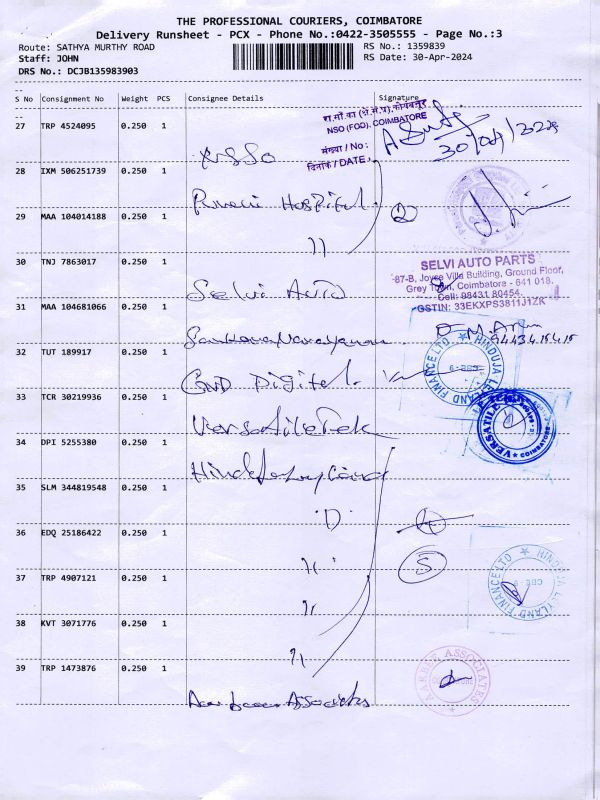 THE PROFESSIONAL COURIERS, COIMBATORE
Delivery Runsheet - PCX - Phone No.:0422-3505555 - Page No.:3
Route: SATHYA MURTHY ROAD
RS No.: 1359839
Staff: JOHN
RS Date: 30-Apr-2024
DRS No.: DCJB135983903
S No Consignment No Weight PCS Consignee Details Signature
रा.सां.का (क्षे.सं.प्र), कोयंबत्तूर
NSO (FOD), COIMBATORE
संख्या / No :
दिनांक / DATE.
27 TRP 4524095 0.250 1
NSSO
28 IXM 506251739 0.250 1
Hospital
29 MAA 104014188 0.250 1
2
11
30 TNJ 7863017 0.250 1
Selvi Auto
SELVI AUTO PARTS
87-B, Joyce Villa Building, Ground Floor,
Grey Town, Coimbatore - 641 018.
Cell: 98431 80454
GSTIN: 33EKXPS3811J1ZK
31 MAA 104681066 0.250 1
Sankaranarayanan
94434 15415
32 TUT 189917 0.250 1
GND Digital
HINDUJA LEYLAND FINANCE LTD
CBE-9
33 TCR 30219936 0.250 1
Versatile Tek
VERSATILE
COIMBATORE
34 DPI 5255380 0.250 1
Hinduja Leyland
35 SLM 344819548 0.250 1
4
36 EDQ 25186422 0.250 1
11
5
HINDUJA LEYLAND FINANCE LTD
CBE 9
37 TRP 4907121 0.250 1
11
38 KVT 3071776 0.250 1
11
39 TRP 1473876 0.250 1
Associates
AARKEE ASSOCIATES